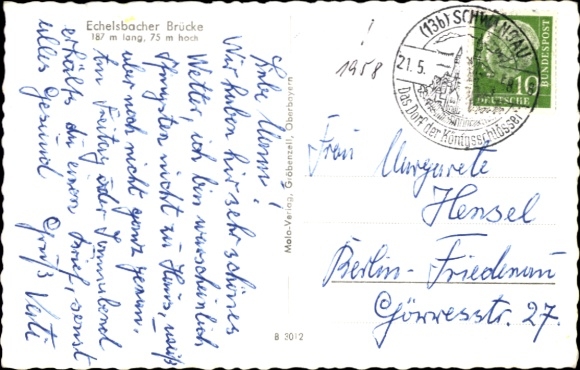 Echelsbacher Brücke
187 m lang, 75 m hoch
Liebe Mama!
Wir haben hir sehr schönes
Wetter, ich bin warscheinlich
Pfingsten nicht zu Haus, weiß
aber noch nicht ganz genau.
Am Freitag oder Sonnabend
erhälts du einen Brief, sonst
alles Gesund
Gruß Verti
Mola-Verlag, Gröbenzell, Oberbayern
B 3012
!
1958
(13b) SCHWANGAU
21.5.
Das Dorf der Königsschlösser
10
DEUTSCHE
BUNDESPOST
Frau Margarete
Hensel
Berlin-Friedenau
Görresstr. 27.